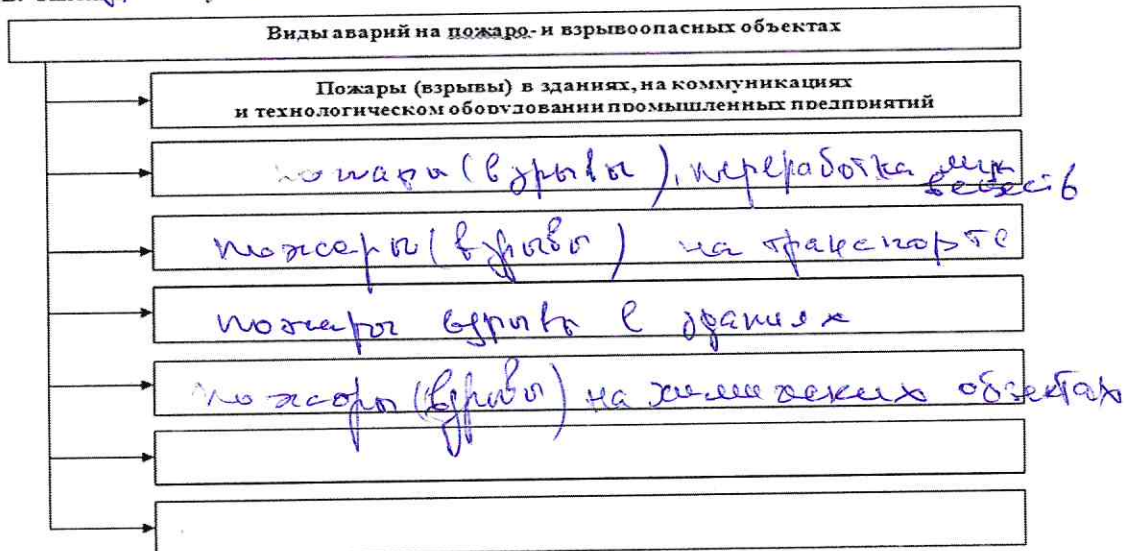 Виды аварий на пожаро- и взрывоопасных объектах
Пожары (взрывы) в зданиях, на коммуникациях
и технологическом оборудовании промышленных предприятий
пожары (взрывы), переработка
веществ
пожары (взрывы) на транспорте
пожары взрывы в зданиях
пожары (взрывы) на химических объектах